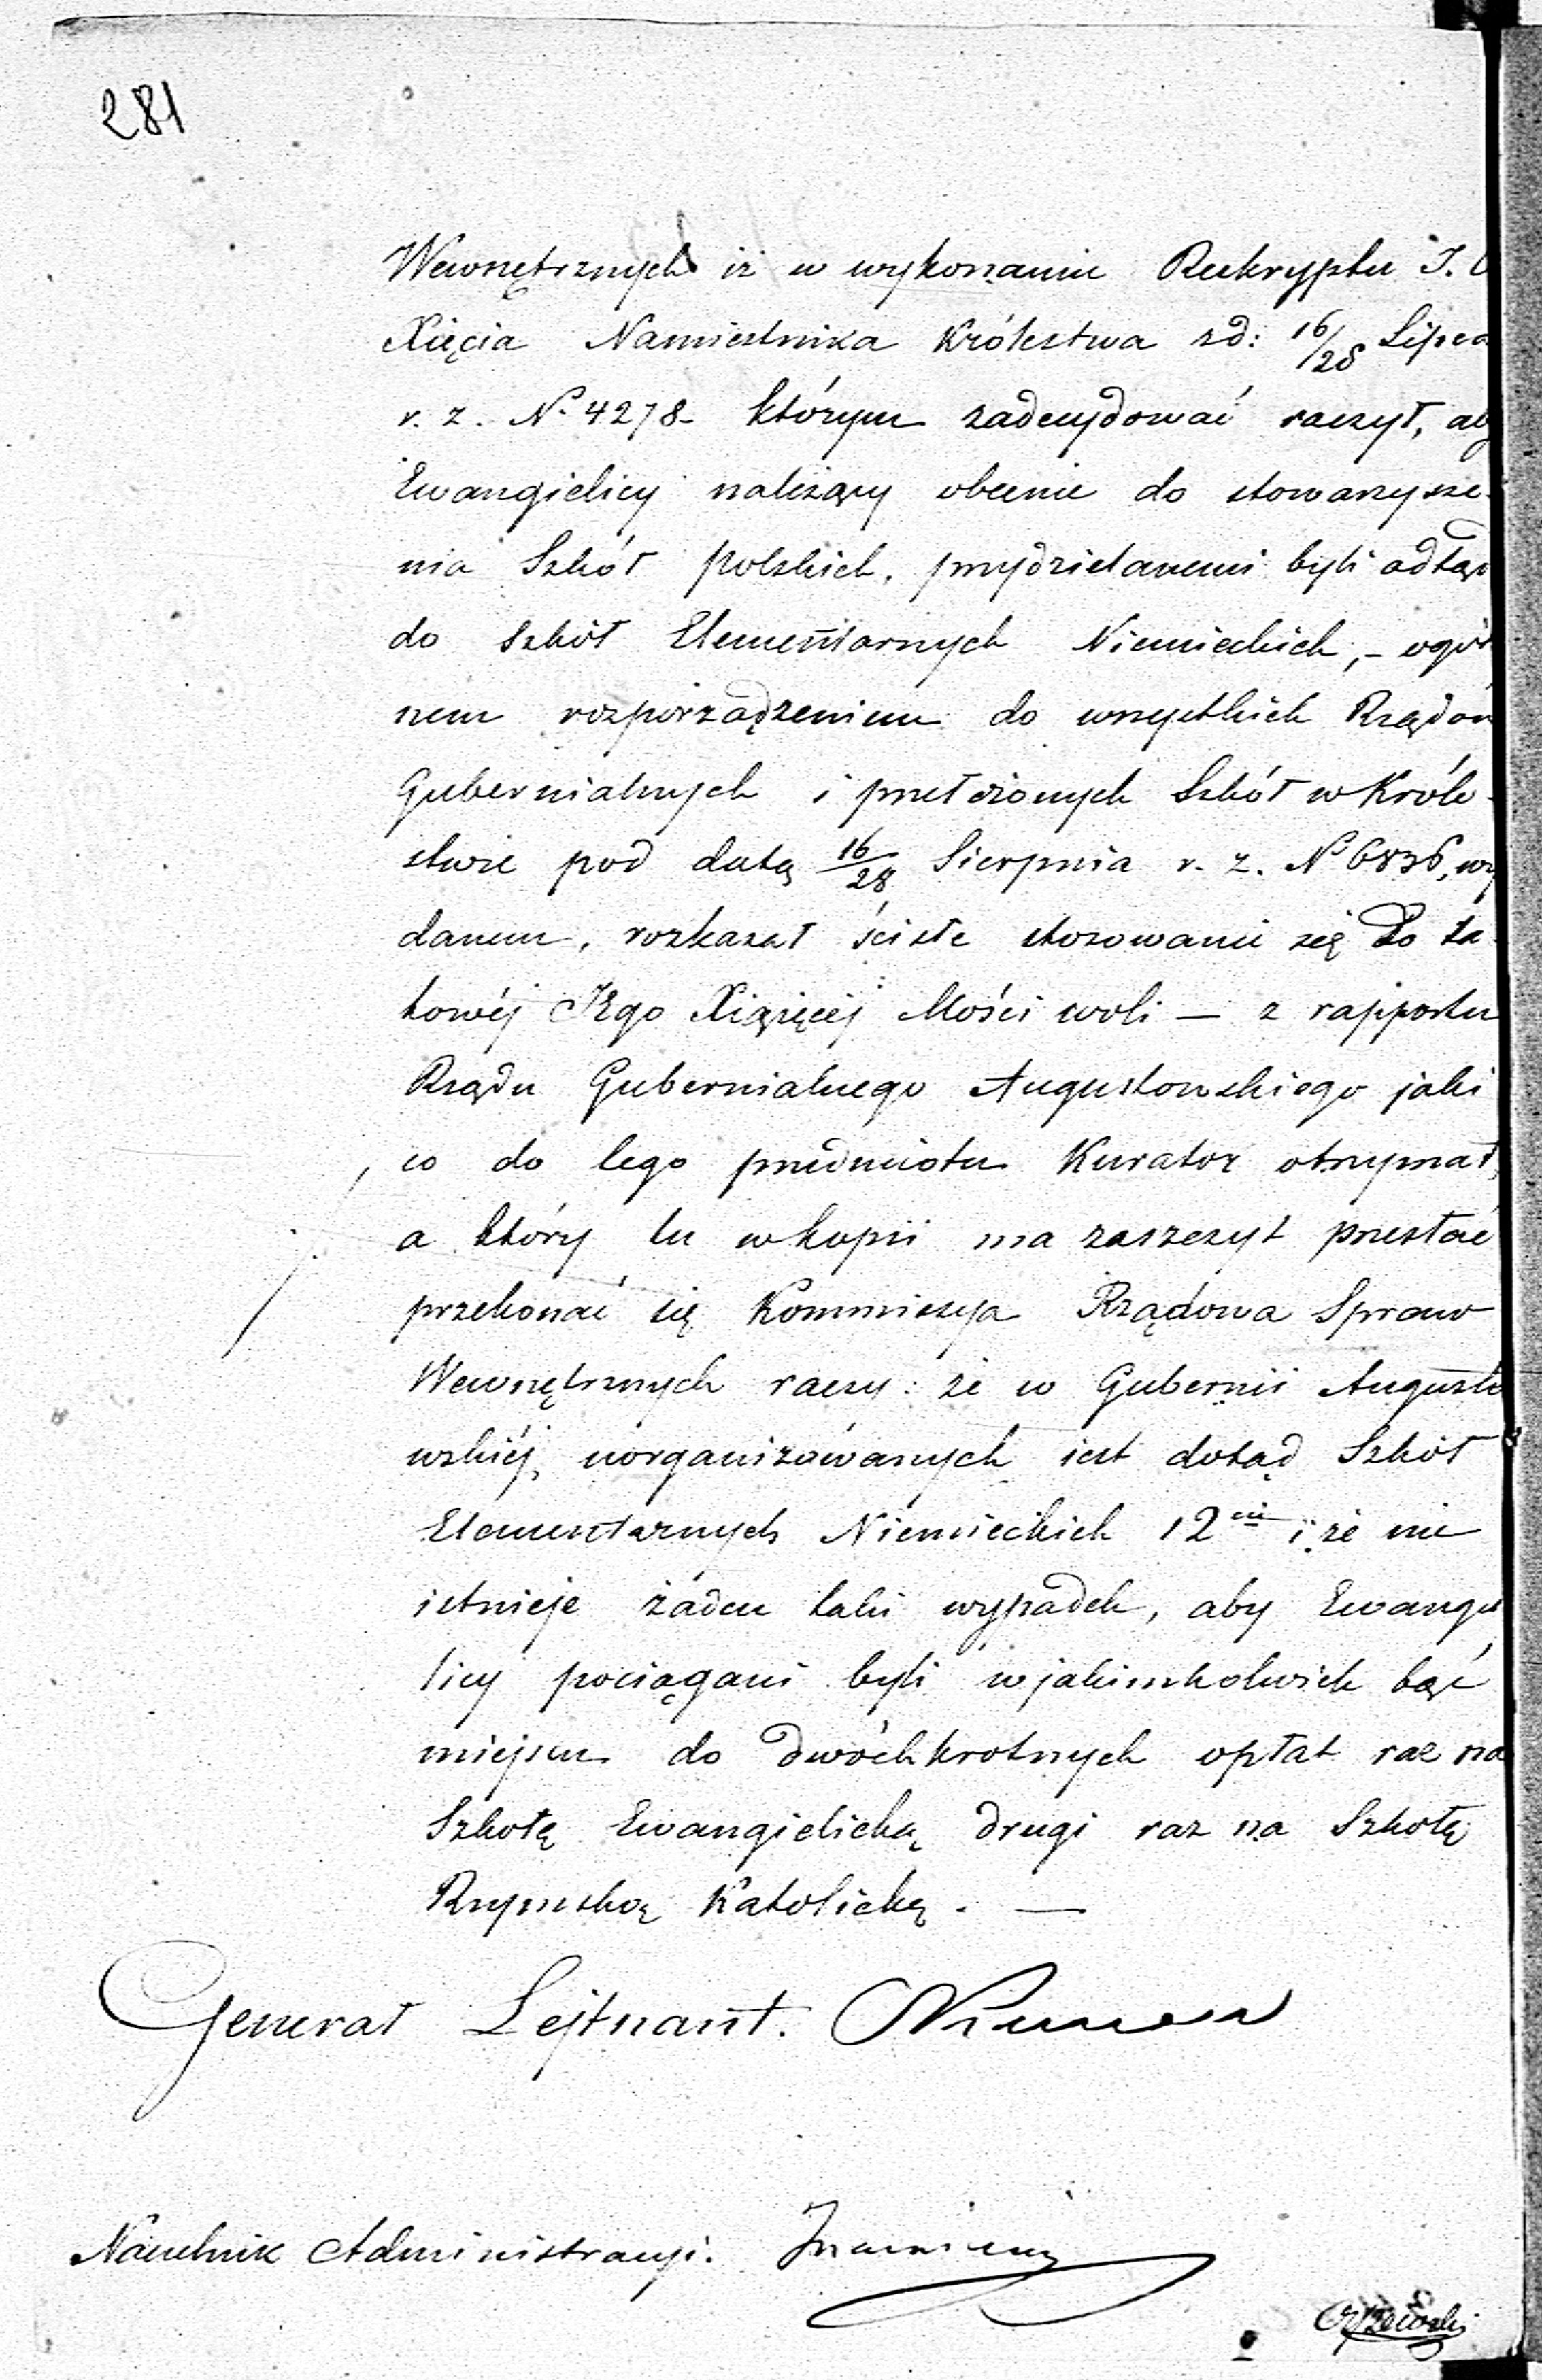 281
Wewnętrznych iż w wykonaniu Reskryptu J.
Xięcia Namiestnika Królestwa z d: 16/28 Lipca
r. z. N° 4278 którym zadecydować raczył, aby
Ewangielicy należący obecnie do stowarzysze-
nia Szkół polskich, przydzielanemi byli odtąd
do szkół Elementarnych Niemieckich, – ogól
nem rozporządzeniem do wszystkich Rządów
Gubernialnych i przełożonych Szkół w Króle-
stwie pod datą 16/28 Sierpnia r. z. N° 6836, wy
danem, rozkazał ściśle stosowanie się do ta-
kowéj JEgo Xiążęcéj Mości woli — z rapportu
Rządu Gubernialnego Augustowskiego jaki
co do tego przedmiotu Kurator otrzymał,
a który tu w kopii ma zaszczyt przesłać
przekonać się Kommissya Rządowa Spraw
Wewnętrznych raczy: że w Gubernii Augusto
wskiéj, uorganizowanych iest dotąd Szkół
Elementarnych Niemieckich 12cie i że nie
istnieje żaden taki wypadek, aby Ewangie
licy pociągani byli w jakimkolwiek bąć
miejscu do dwóchkrotnych opłat raz na
Szkołę Ewangielicką drugi raz na Szkołę
Rzymsko Katolicką. —
Generał Lejtnant.
Naczelnik Administracyi.